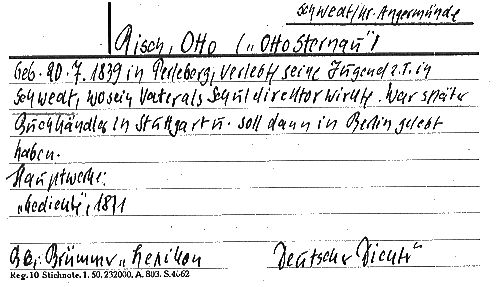 Schwedt/Kr. Angermünde
Risch, Otto ("Otto Sternau")
Geb. 20.7.1839 in Perleberg, verlebte seine Jugend z.T. in
Schwedt, wo sein Vater als Schuldirektor wirkte. War später
Buchhändler in Stuttgart u. soll dann in Berlin gelebt
haben.
Hauptwerke:
"Gedichte", 1871
Brümmer "Lexikon Deutscher Dichter"
Reg. 10 Stichnote. 1. 50. 232000. A. 803. S. 4662